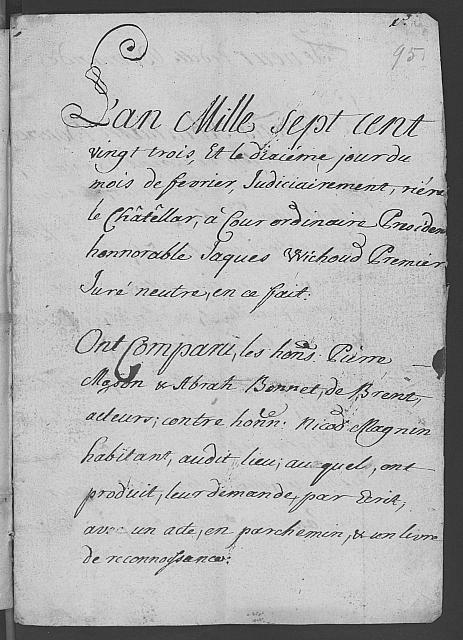 95
L'an Mille sept cent
vingt trois, Et le dixiéme jour du
mois de fevrier, Judiciairement, riére
le Châtêllar, à Cour ordinaire Presiden
honnorable Jaques Wichoud Premier
Juré neutre, en ce fait:
Ont Comparu, les hons: Pierre
& Abrah Bonnet, de Brent,
acteurs; contre honn: Nicod Magnin
habitant, audit lieu; au quel, ont
produit, leur demande, par Ecrit,
avec un acte, en parchemin, & un livre
de reconnoissance: